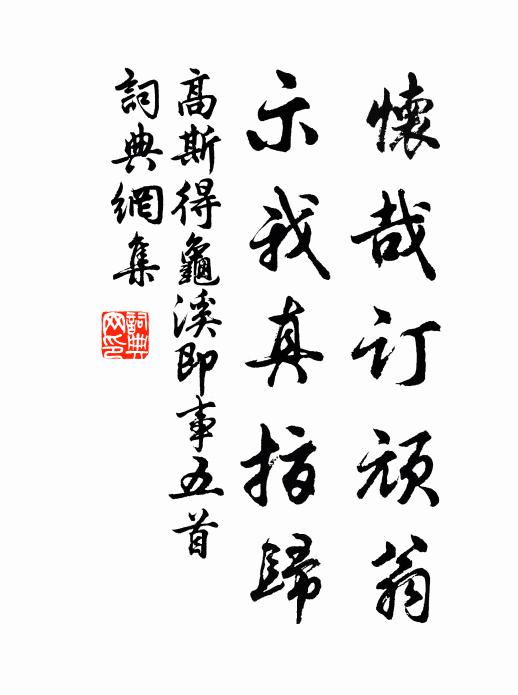 懷哉订頑翁
示我真指歸
高斯得龜溪即事五首
詞典網集
詞典网印